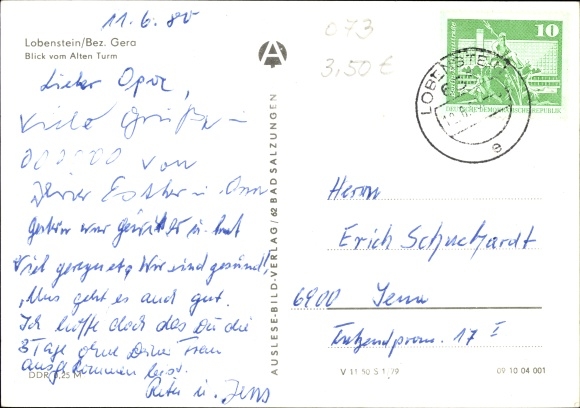 11.6.80
Lobenstein/Bez. Gera
Blick vom Alten Turm
Lieber Opa,
viele Grüße
000000 von
Deiner Esther u. Oma
Gestern war Gewitter u. hat
viel geregnet, Wir sind gesund,
Uns geht es auch gut.
Ich hoffe doch das Du die
3 Tage ohne Deine Frau
ausgekommen bist.
u. Jens
DDR 0,25 M
AUSLESE-BILD-VERLAG/62 BAD SALZUNGEN
A
073
3,50 €
10
DEUTSCHE DEMOKRATISCHE REPUBLIK
LOBENSTEIN
e
Herrn
Erich Schuchardt
6900 Jena
17 I
V 11 50 S 1/79
09 10 04 001